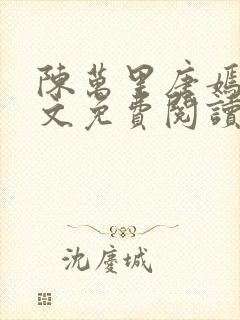 陳萬里唐嫣
文免費閱讀
沈慶城